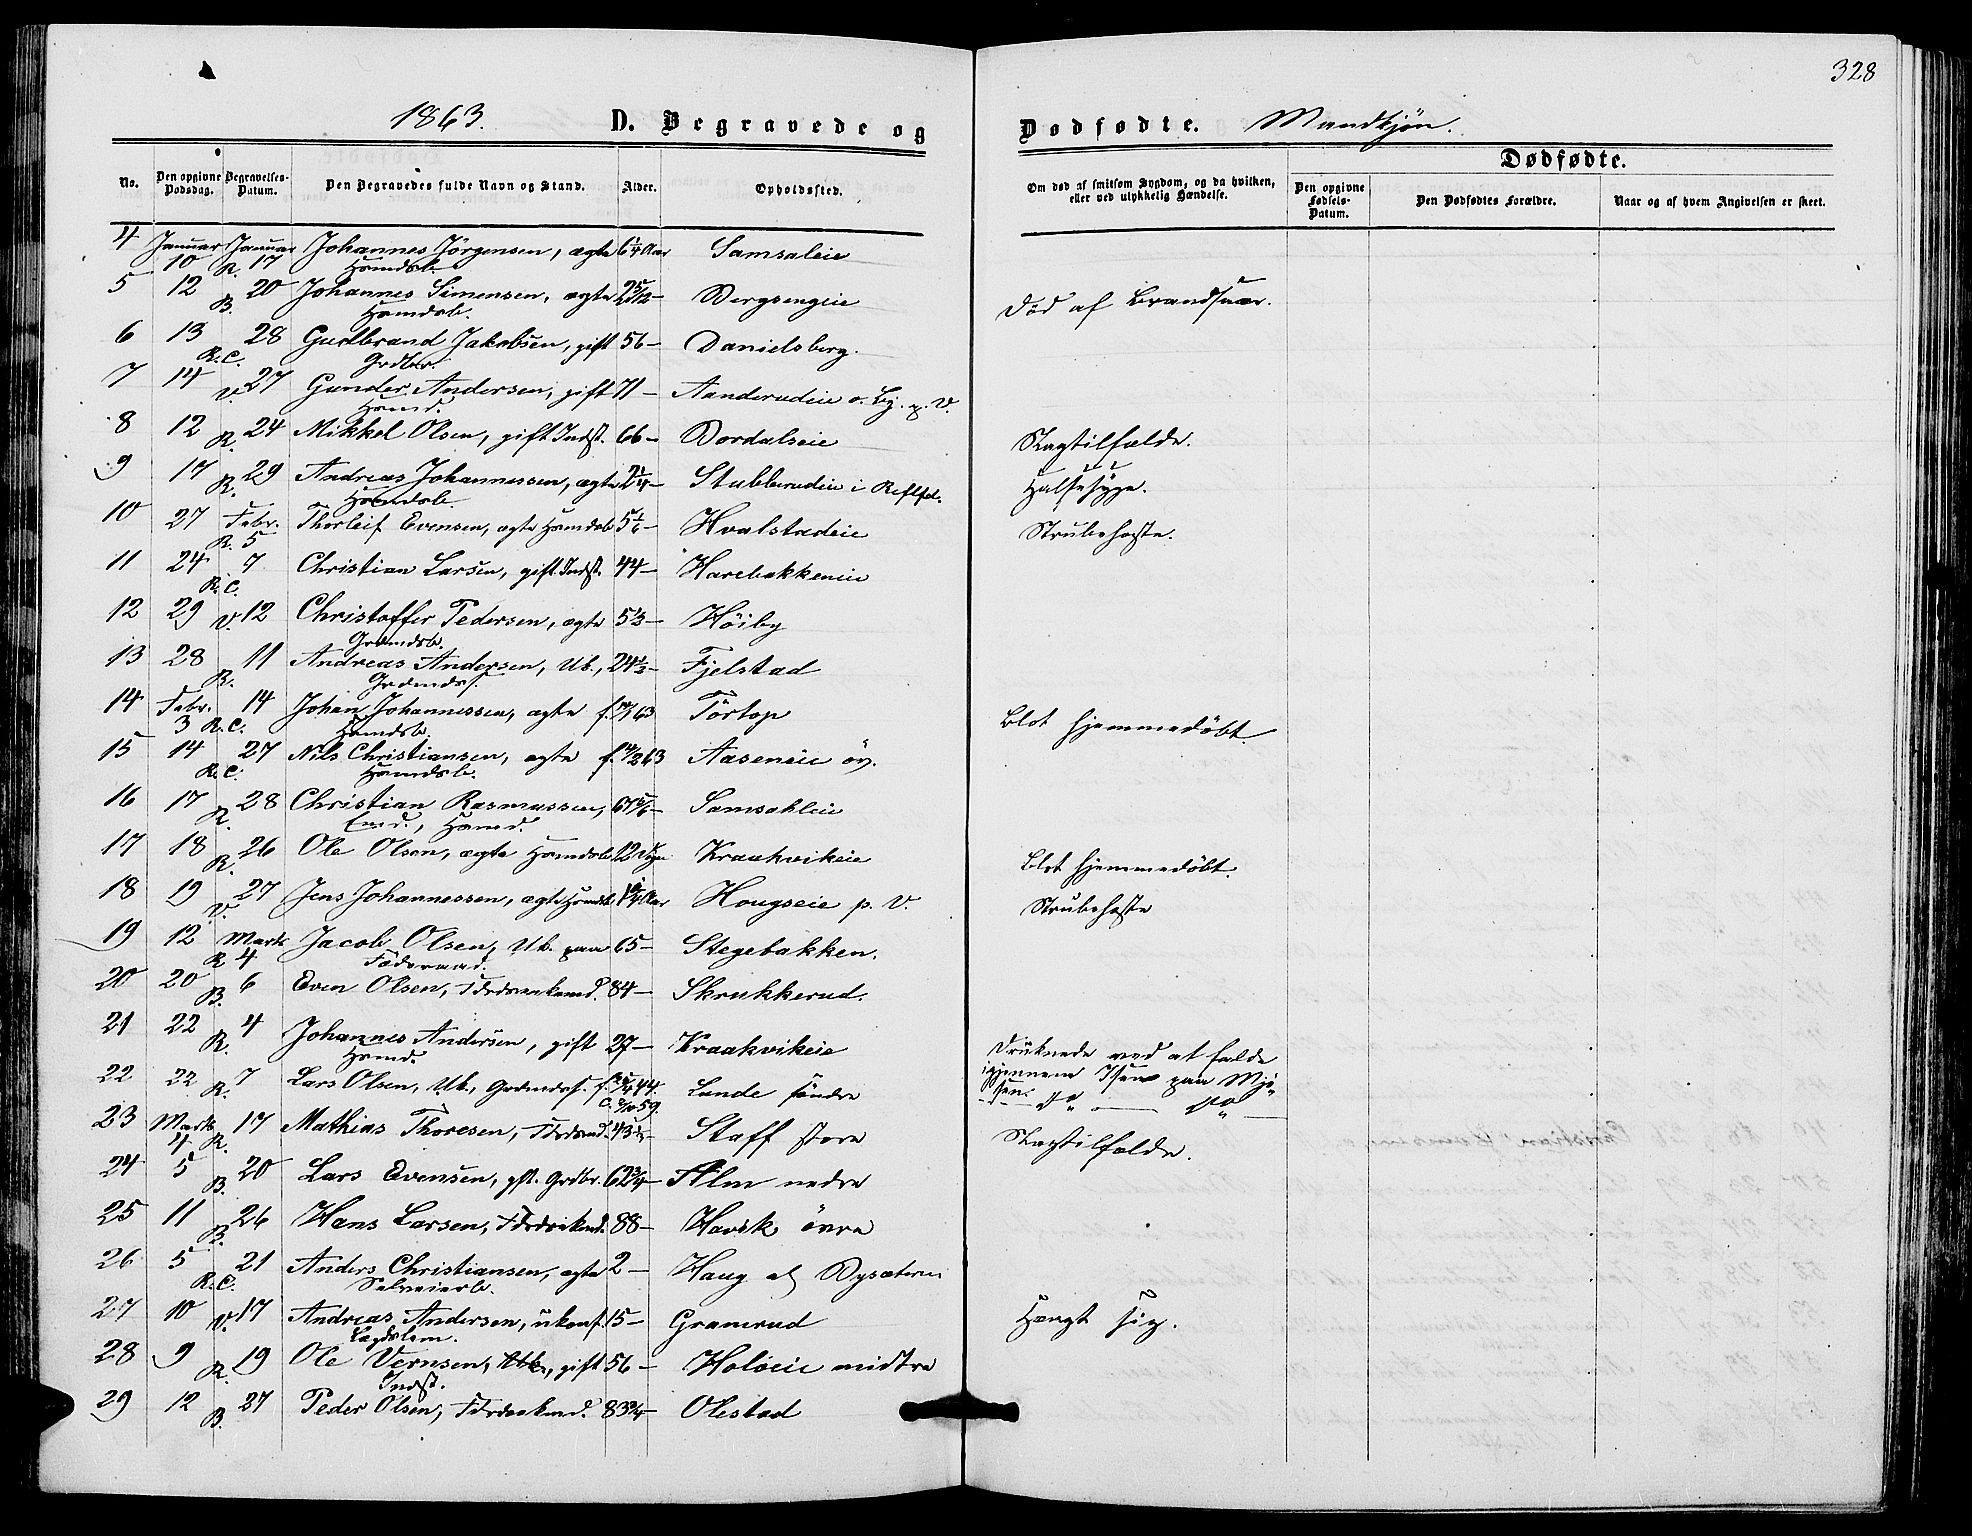 328
1863. D. Begravede og Dødfødte. Mandkjøn.
Dødfødte.
No. Den opgivne Dødsdag. Begravelses-Datum. Den Begravedes fulde Navn og Stand. Alder. Opholdssted. Om død af smitsom Sygdom, og da hvilken, eller ved ulykkelig Hændelse. Den opgivne Fødsels-Datum. Den Dødfødtes Forældre. Naar og af hvem Angivelsen er skeet.
4 Januar 10 Januar R. 17 Johannes Jørgensen, ægte Hsmdsb. 6 1/4 Aar Samsaleie
5 12 B. 20 Johannes Simensen, ægte Hsmdsb. 2 5/12 – Bergsengeie Død af Brandsaar.
6 13 R.C. 28 Gudbrand Jakobsen, gift Grdbr. 56 – Danielsberg.
7 14 V. 27 Gunder Andersen, gift Hsmd. 71 – Aanderudeie o. Lg. p. V.
8 12 R. 24 Mikkel Olsen, gift Indst. 66 – Dordalseie Slagtilfælde.
9 17 R. 29 Andreas Johannessen, ægte Hsmdsb. 2 1/4 – Stubberudeie i Reflsd. Halssyge.
10 27 Febr. R. 5 Thorleif Evensen, ægte Hsmdsb. 5 1/6 – Hvalstadeie Strubehoste.
11 24 R.C. 7 Christian Larsen, gift Indst. 44 – Harebakkeneie
12 29 V. 12 Christoffer Pedersen, ægte Grdmdsb. 5 1/3 – Høiby
13 28 R. 11 Andreas Andersen, Ub., Grdmdss. 24 1/2 – Fjelstad
14 Febr. 3 R.C. 14 Johan Johannessen, ægte Hsmdsb. f. 63 Tørtop Blot hjemmedøbt.
15 14 R.C. 27 Nils Christiansen, ægte Hsmdsb. f. 14/2 63 Aaseneie øv.
16 17 R. 28 Christian Rasmussen, Enkmd., Hsmd. 67 5/6 – Samsahleie
17 18 R. 26 Ole Olsen, ægte Hsmdsb. 12 Dage Kraakvikeie Blot hjemmedøbt.
18 19 V. 27 Jens Johannessen, ægte Hsmdsb. 1 3/4 Aar Hougseie p. V. Strubehoste
19 12 Marts R 4 Jacob Olsen, Ub. paa Føderaad. 65 – Stegebakken.
20 20 B. 6 Even Olsen, Fdrdsenkemd. 84 – Skrukkerud.
21 22 R. 4 Johannes Andersen, gift Hsmd. 27 – Kraakvikeie Druknede ved at falde igjennem Isen paa Mjøsen.
22 22 R. 7 Lars Olsen, Ub., Grdmdss. f. 44. C. 59. Lunde søndre – Do – Do –
23 Marts 4 R. 17 Mathias Thoresen, Fdrdsmd. 43 1/2 – Staff store Slagtilfælde.
24 5 B. 20 Lars Evensen, gft. Grdbr. 62 3/4 – Alm nedre
25 11 B. 26 Hans Larsen, Fdrdsenkmd. 88 – Havsk øvre
26 5 R.C. 21 Anders Christiansen, ægte Selveierb. 2 – Haug al Dysæteren
27 10 V. 17 Andreas Andersen, ukonf. Lægdslem. 15 – Granerud Hængt sig.
28 9 R. 19 Ole Vernsen, gift Indst. 56 – Holoeie midtre
29 12 B. 27 Peder Olsen, Fdrdsenkmd. 83 3/4 – Olestad